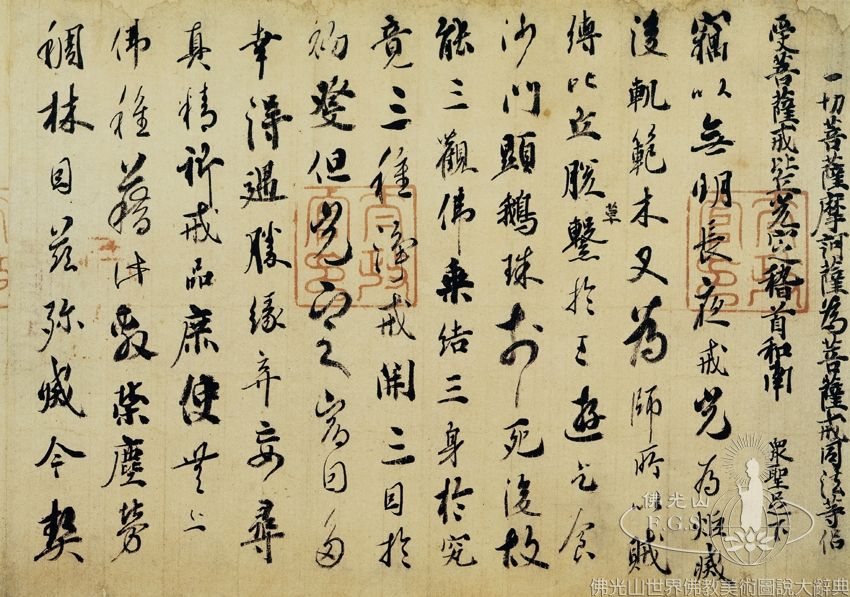 一切菩薩摩訶薩為菩薩戒同法等侶
受菩薩戒比丘光定稽首和南 眾聖足下
竊以無明長夜戒光為炬滅
後軌範木叉為師所以賊
縛比丘脫草繫於王遊乞食
沙門顯鵝珠於死後故
能三觀佛乘結三身於究
竟三種淨戒開三因於
初發但光定宿因多
幸得遇勝緣弃妄尋
真精祈戒品庶使無上
佛種藉此敷榮塵勞
稠林因茲弥滅今契
佛光山
F.G.S.
佛光山世界佛教美術圖說大辭典